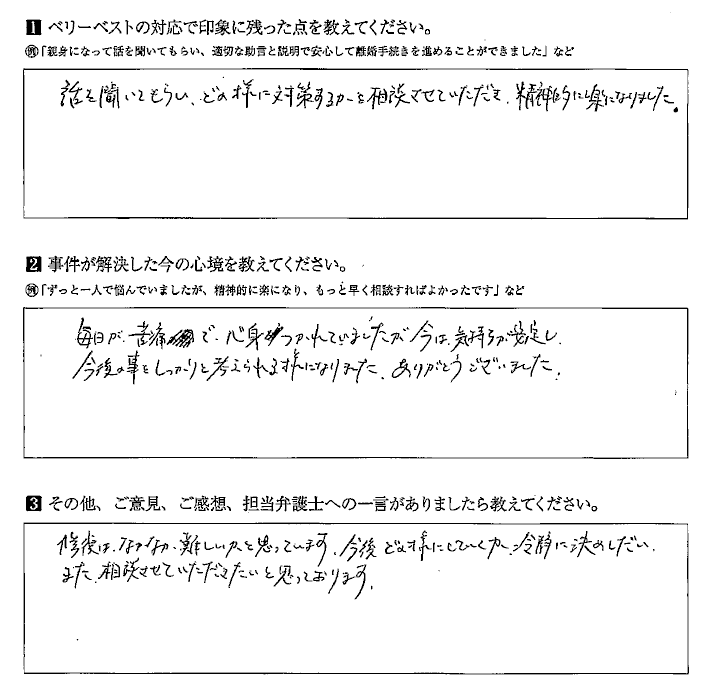 1 ベリーベストの対応で印象に残った点を教えてください。
例「親身になって話を聞いてもらい、適切な助言と説明で安心して離婚手続きを進めることができました」など
話を聞いてもらい、どの様に対策するかを相談させていただき、精神的に楽になりました。
2 事件が解決した今の心境を教えてください。
例「ずっと一人で悩んでいましたが、精神的に楽になり、もっと早く相談すればよかったです」など
毎日が、苦痛で、心身つかれていましたが今は、気持ちが安定し、
今後の事をしっかりと考えられる様になりました、ありがとうございました。
3 その他、ご意見、ご感想、担当弁護士への一言がありましたら教えてください。
修復は、なかなか、難しいかと思っています、今後どの様にしていくか、冷静に決めしだい、
また、相談させていただきたいと思っております。